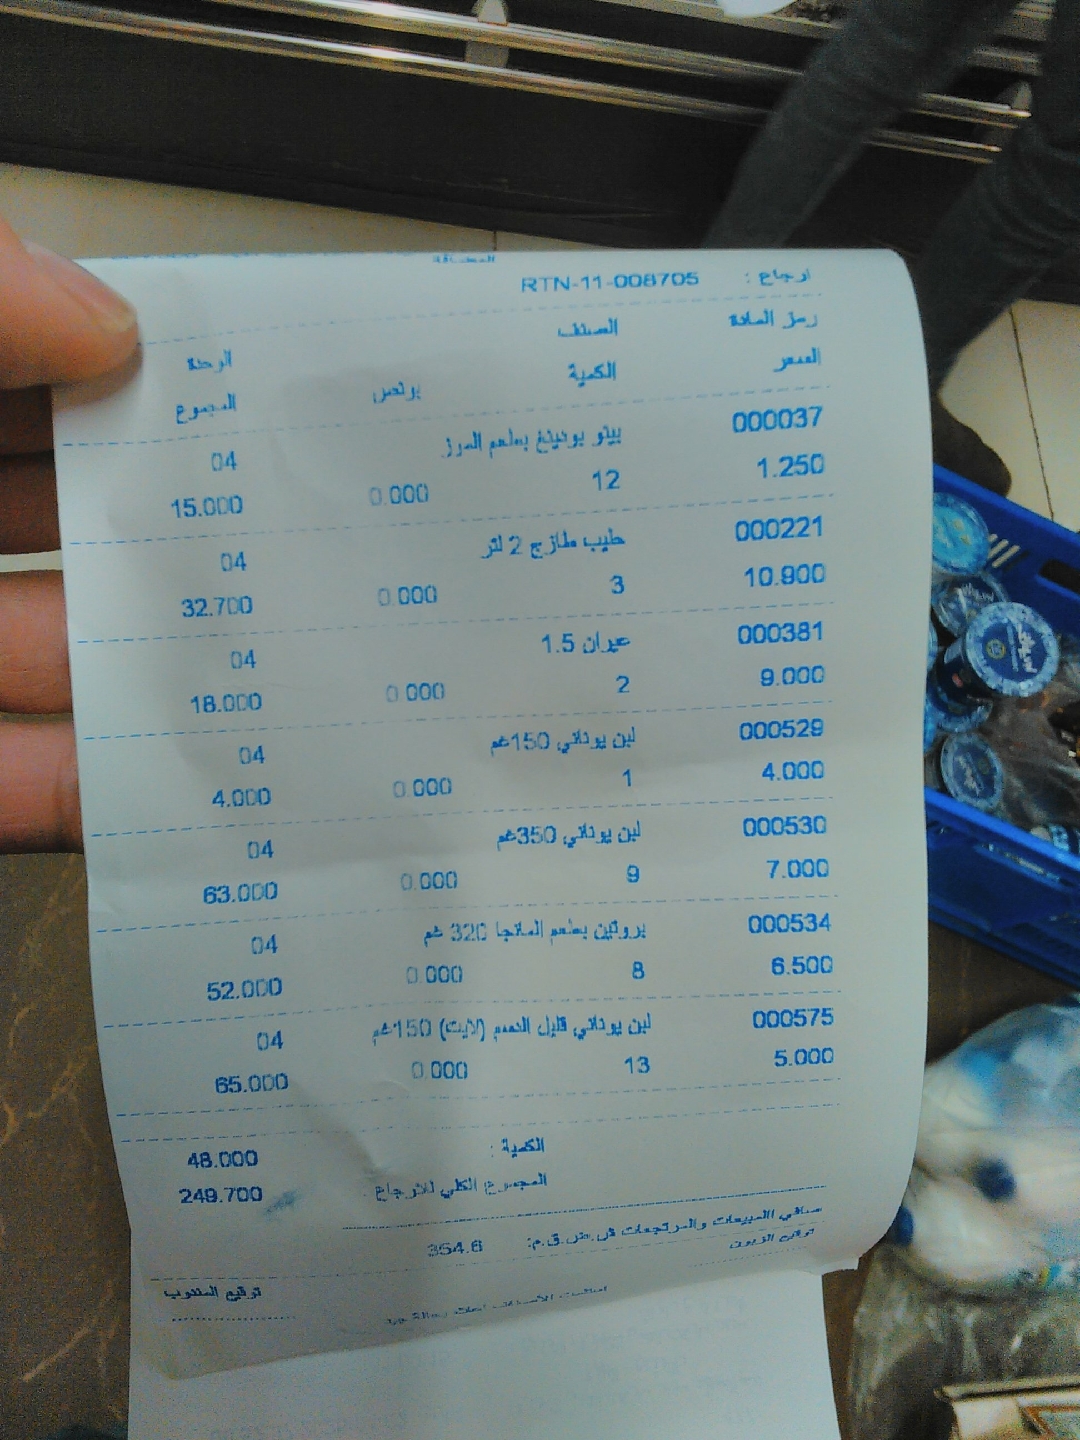 المضافة
ارجاع : RTN-11-008705
رمز المادة الصنف الوحدة
السعر الكمية بونص المجموع
000037 بينو بودينغ بطعم الموز 04
1.250 12 0.000 15.000
000221 حليب طازج 2 لتر 04
10.900 3 0.000 32.700
000381 عيران 1.5 04
9.000 2 0.000 18.000
000529 لبن يوناني 150غم 04
4.000 1 0.000 4.000
000530 لبن يوناني 350غم 04
7.000 9 0.000 63.000
000534 بروتين بطعم المانجا 320 غم 04
6.500 8 0.000 52.000
000575 لبن يوناني قليل الدسم (لايت) 150غم 04
5.000 13 0.000 65.000
الكمية : 48.000
المجموع الكلي للارجاع : 249.700
صافي المبيعات والمرتجعات ش.ض.ق.م: 354.6
توقيع الزبون
توقيع المندوب